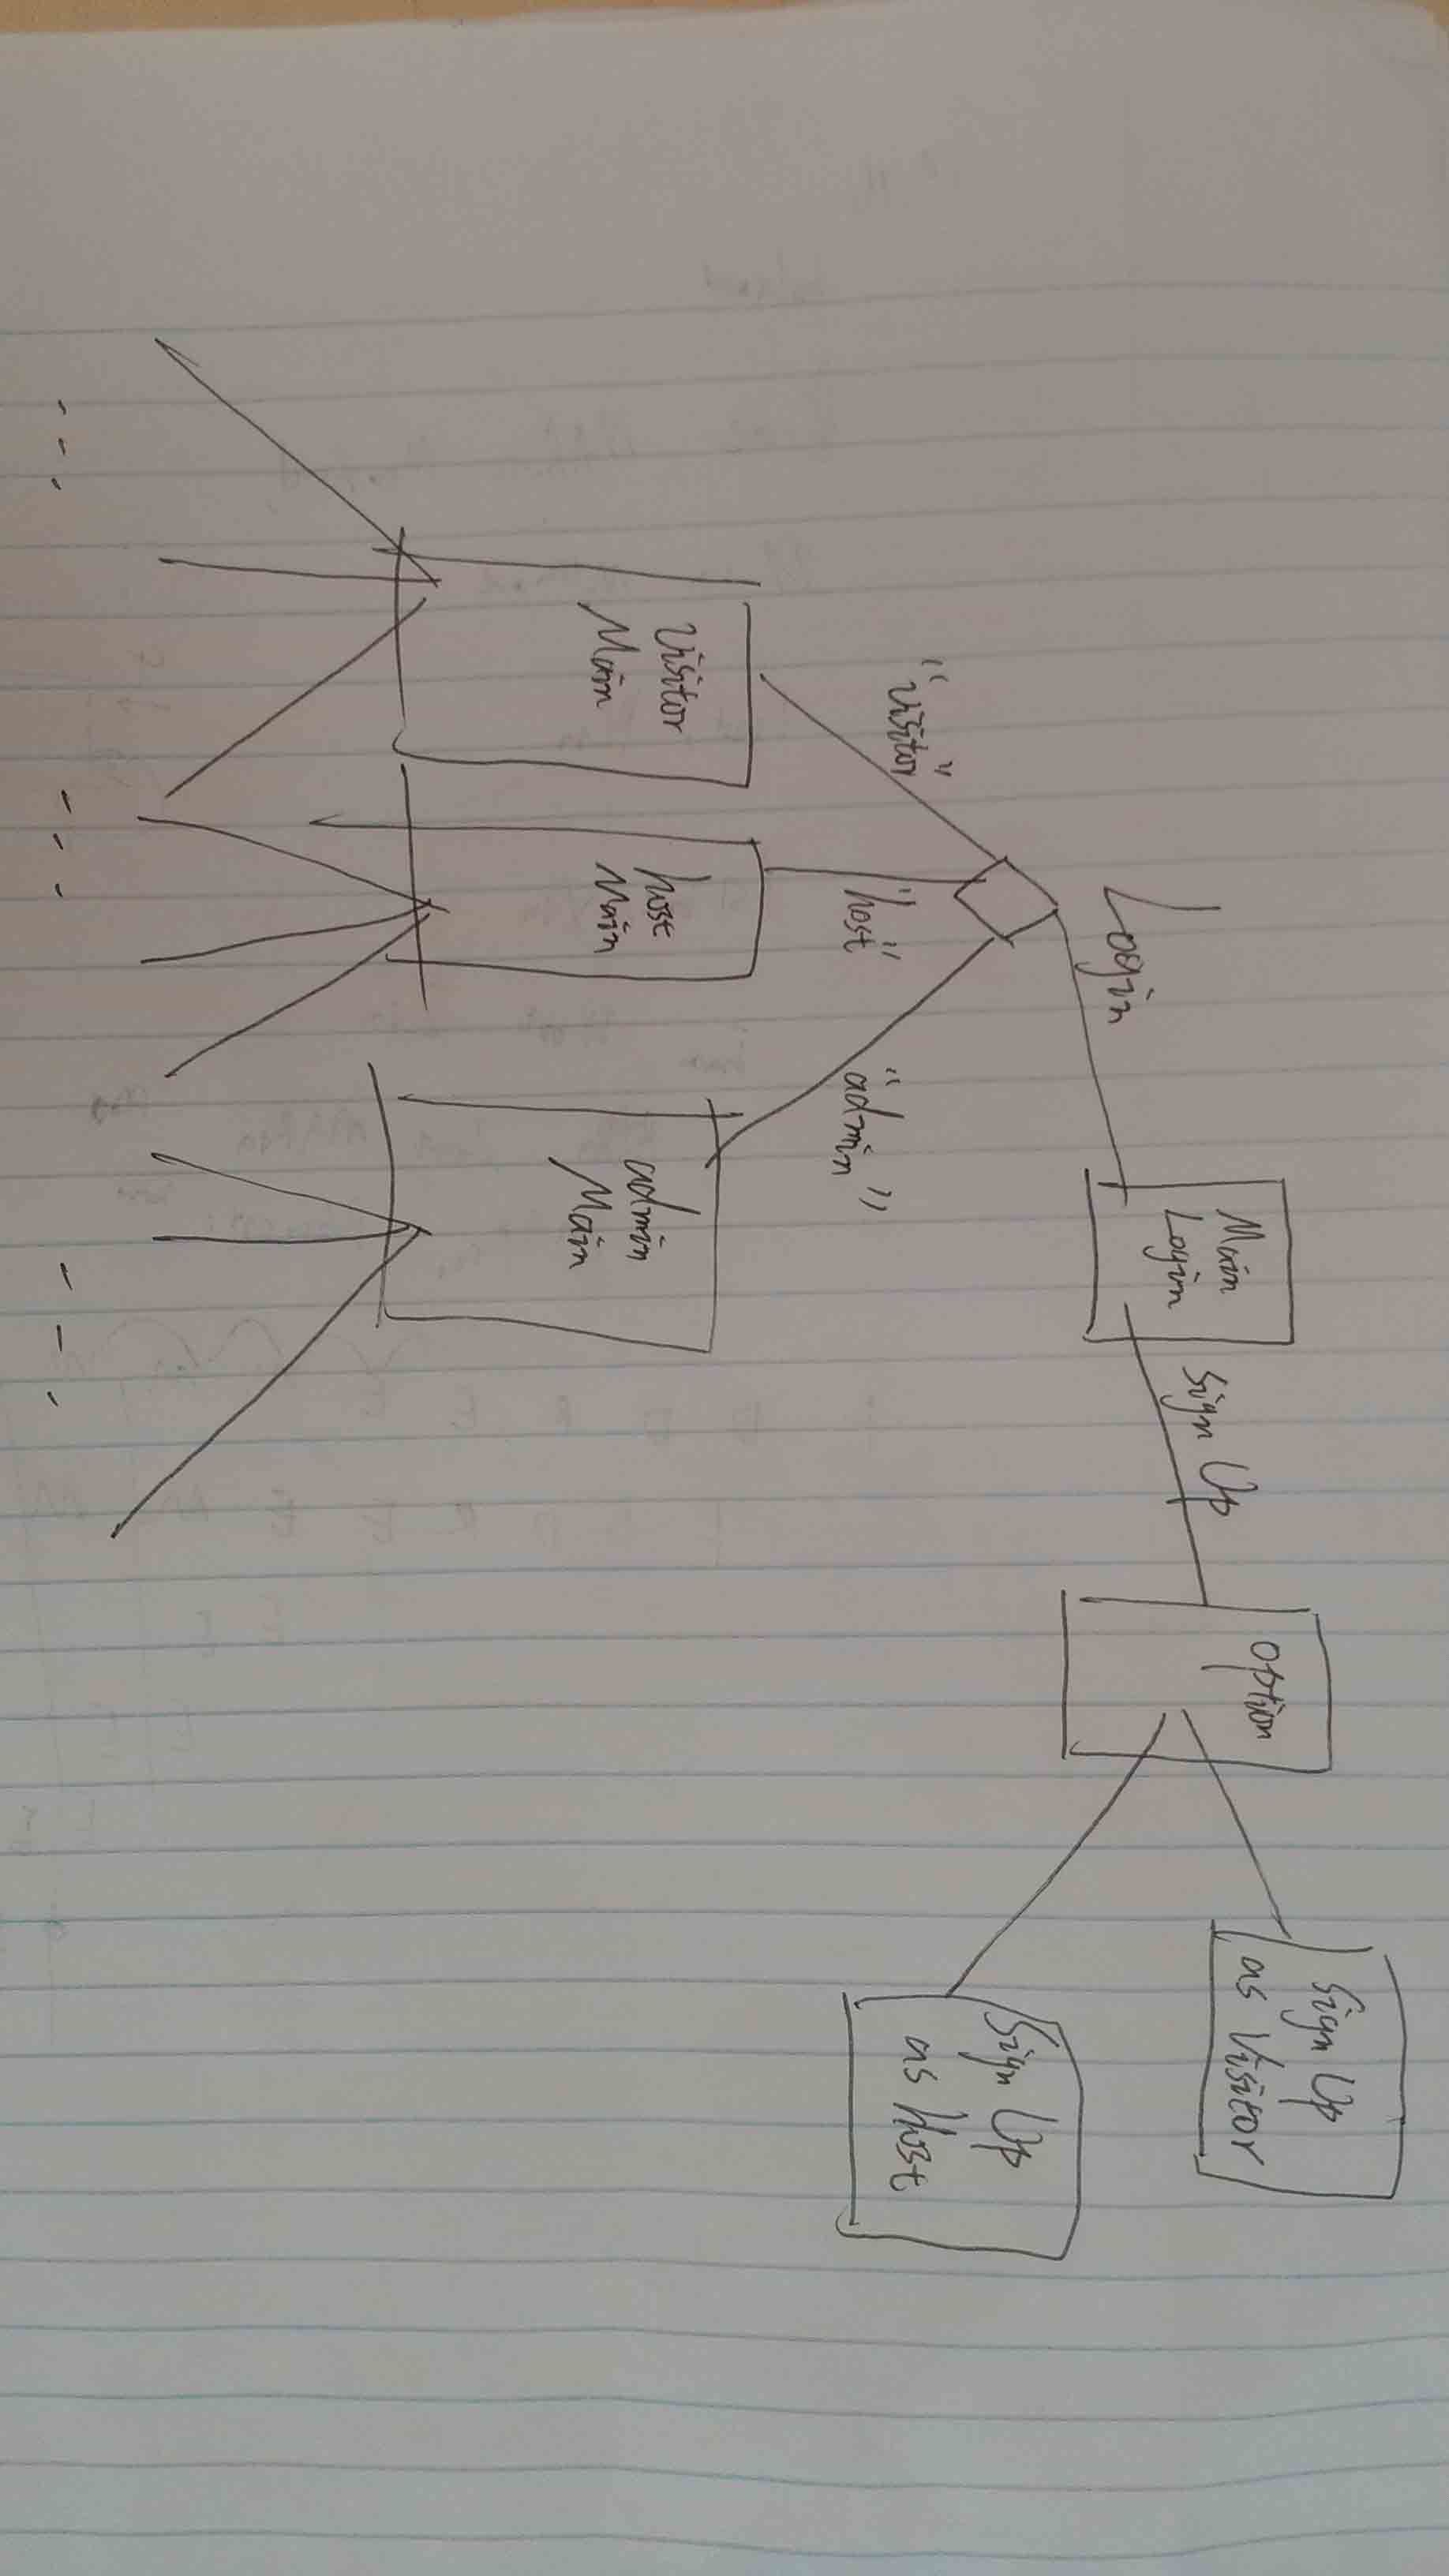 Main
Login
Login
Sign Up
option
Sign Up
as Visitor
Sign Up
as host
"visitor"
"host"
"admin"
Visitor
Main
host
Main
admin
Main